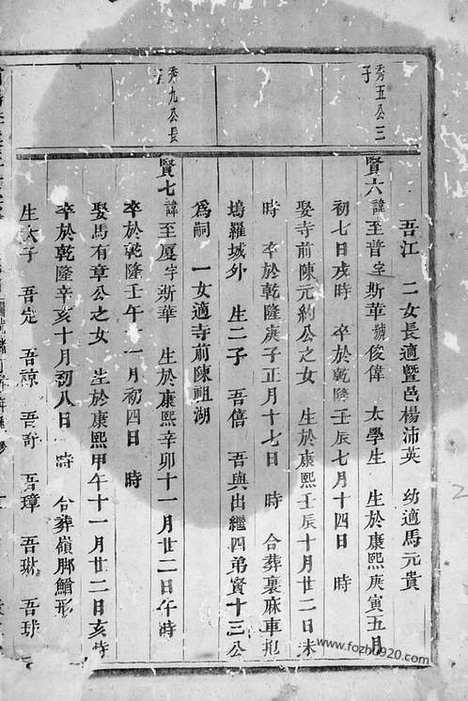 秀五公三子
秀九公長子
吾江　二女長適暨邑楊沛英　幼適馬元貴
賢六諱至普字斯華號俊偉　太學生　生於康熙庚寅五月
初七日戌時　卒於乾隆壬辰七月十四日　時
娶寺前陳元約公之女　生於康熙壬辰十月廿二日未
時　卒於乾隆庚子正月十七日　時　合葬裏麻車
塢羅城外　生二子　吾僖　吾與出繼四弟賢十三公
為嗣　一女適寺前陳祖湖
賢七諱至厦字斯華　生於康熙辛卯十一月廿二日午時
卒於乾隆壬午十一月初四日　時
娶馬有章公之女　生於康熙甲午十一月廿二日亥時
卒於乾隆辛亥十月初八日　時　合葬嶺脚鰌形
生六子　吾定　吾諒　吾奇　吾璋　吾琳　吾球
www.fozhu920.com